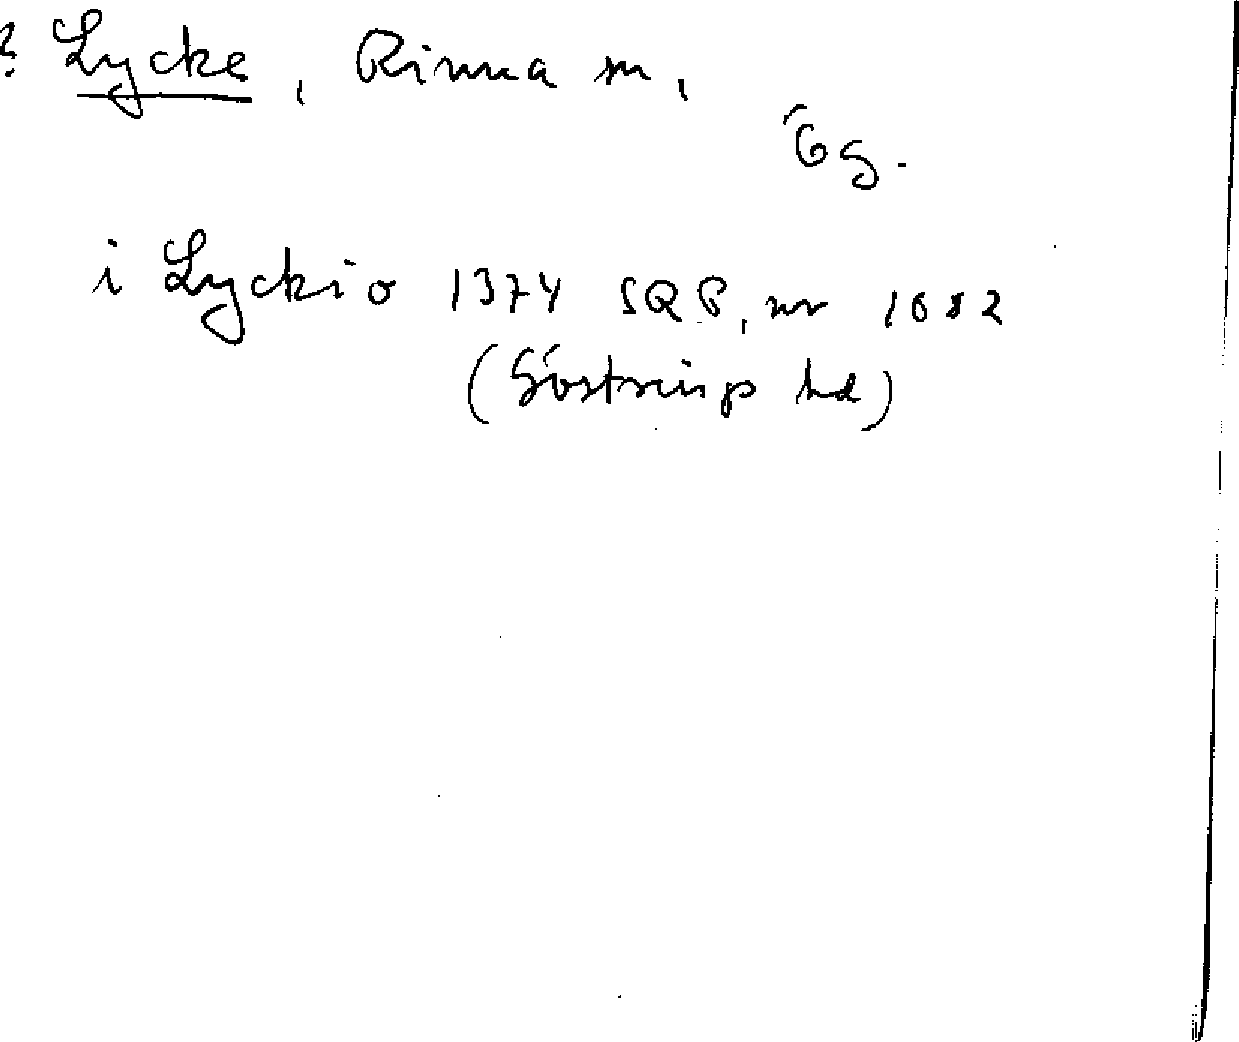 ? Lycke, Rinna sn,
Ög.
i Lyckio 1374 SRP, nr 1082
(Göstrings hd)